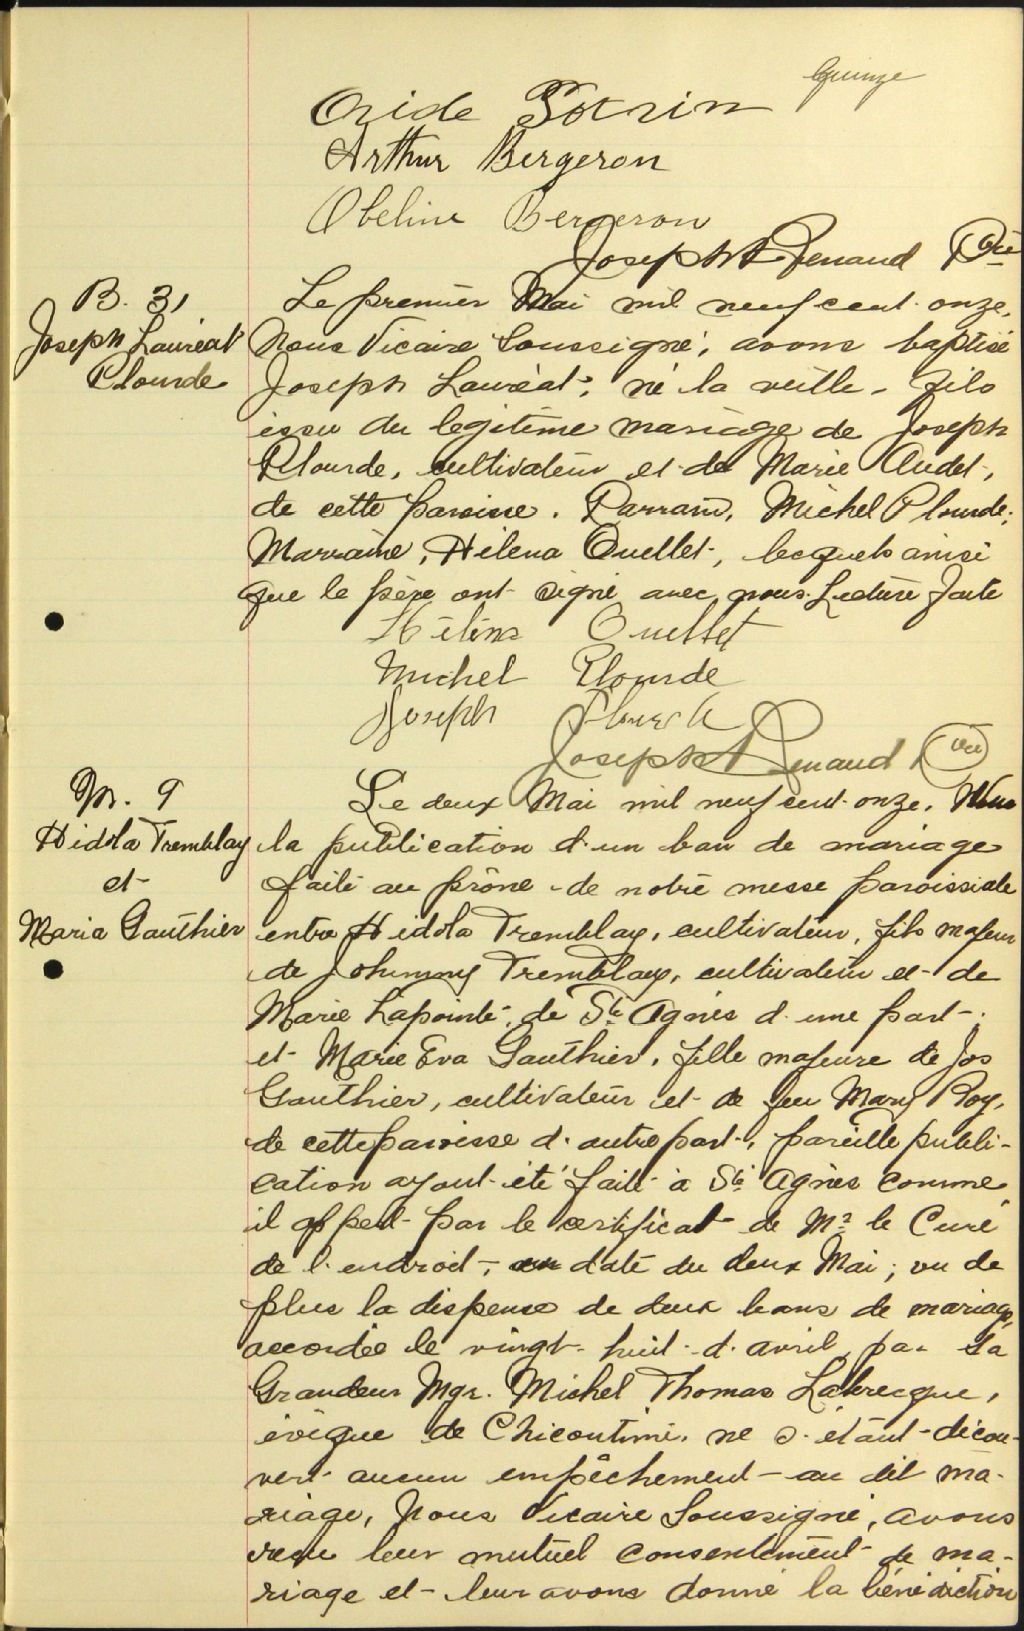 Quinze
Oride Potvin
Arthur Bergeron
Obeline Bergeron
Joseph A Renaud Ptre
B. 31
Joseph Lauréat
Plourde
Le premier Mai mil neuf cent onze,
Nous Vicaire Soussigné, avons baptisé
Joseph Lauréat, né la veille, fils
issu du légitime mariage de Joseph
Plourde, cultivateur et de Marie Audet,
de cette paroisse. Parrain, Michel Plourde;
Marraine, Hélena Ouellet, lesquels ainsi
que le père ont signé avec nous. Lecture faite
Héléna Ouellet
Michel Plourde
Joseph Plourde
Joseph A Renaud Ptre
M. 9
Hidola Tremblay
et
Maria Gauthier
Le deux Mai mil neuf cent onze, Vu
la publication d'un ban de mariage
faite au prône de notre messe paroissiale
entre Hidola Tremblay, cultivateur, fils majeur
de Johnny Tremblay, cultivateur et de
Marie Lapointe, de Ste Agnès d'une part;
et Marie Eva Gauthier, fille majeure de Jos
Gauthier, cultivateur et de feu Mary Roy,
de cette paroisse d'autre part, pareille publi-
cation ayant été faite à Ste Agnès comme
il appert par le certificat de Mr le Curé
de l'endroit, en date du deux Mai; vu de
plus la dispense de deux bans de mariage,
accordée le vingt-huit d'avril par Sa
Grandeur Mgr. Michel Thomas Labrecque,
évêque de Chicoutimi, ne s'étant décou-
vert aucun empêchement au dit ma-
riage, Nous Vicaire Soussigné, avons
reçu leur mutuel consentement de ma-
riage et leur avons donné la bénédiction